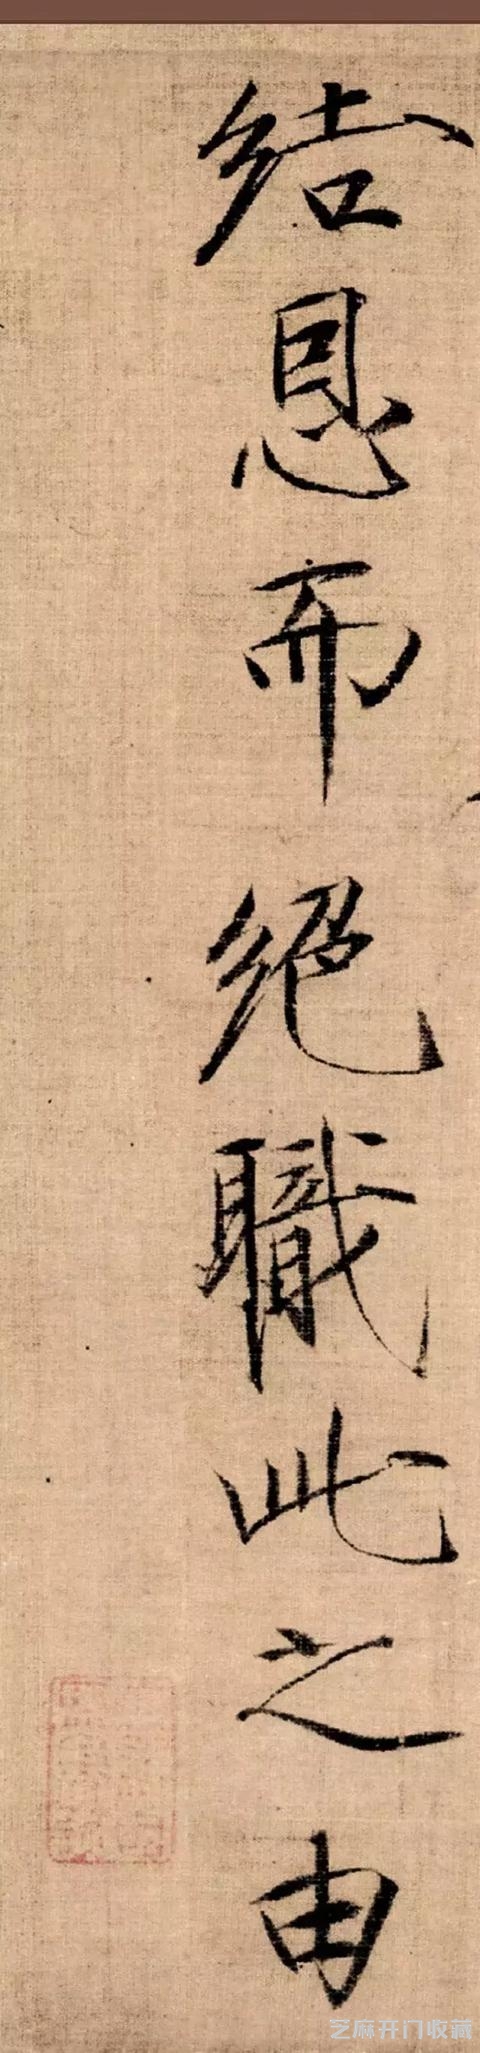 結恩而絕職此之由
芝麻开门收藏